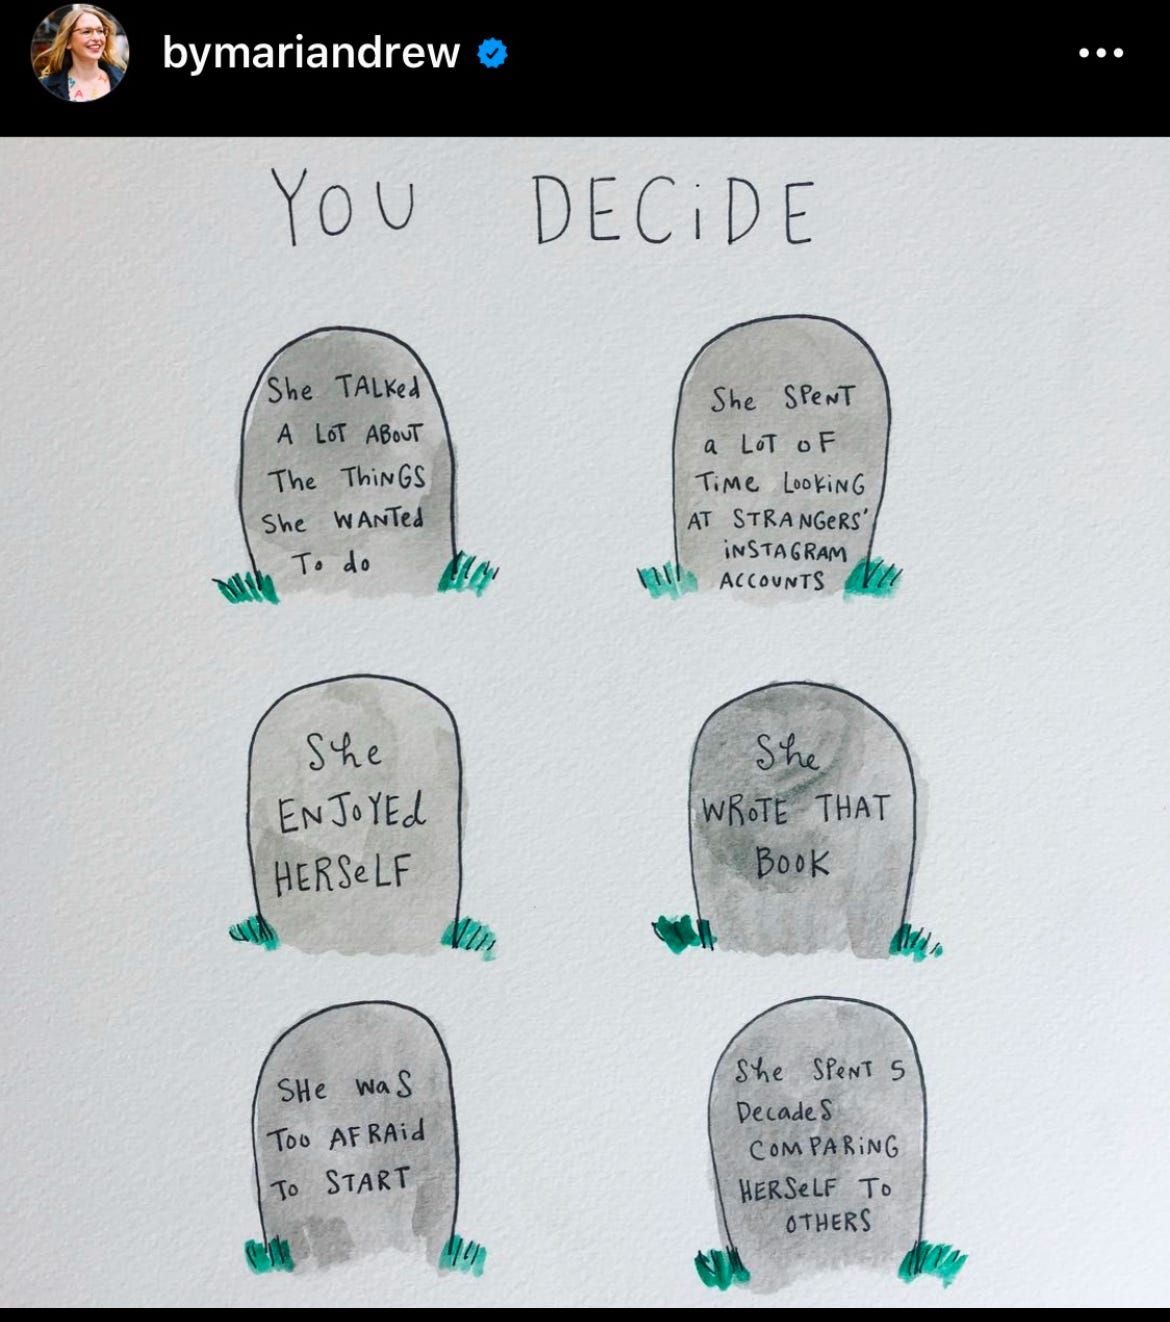 bymariandrew
YOU DECiDE
She TALKed
A LOT ABOUT
The THiNGS
She WANTed
To do
She SPeNT
a LOT OF
TiMe LOOKiNG
AT STRANGeRS'
iNSTAGRAM
ACCOUNTS
She
ENJOYEd
HERSeLF
She
WROTE THAT
BOOK
SHe WaS
Too AFRAid
To START
She SPeNT 5
DecadeS
COMPARiNG
HERSeLF To
OTHERS